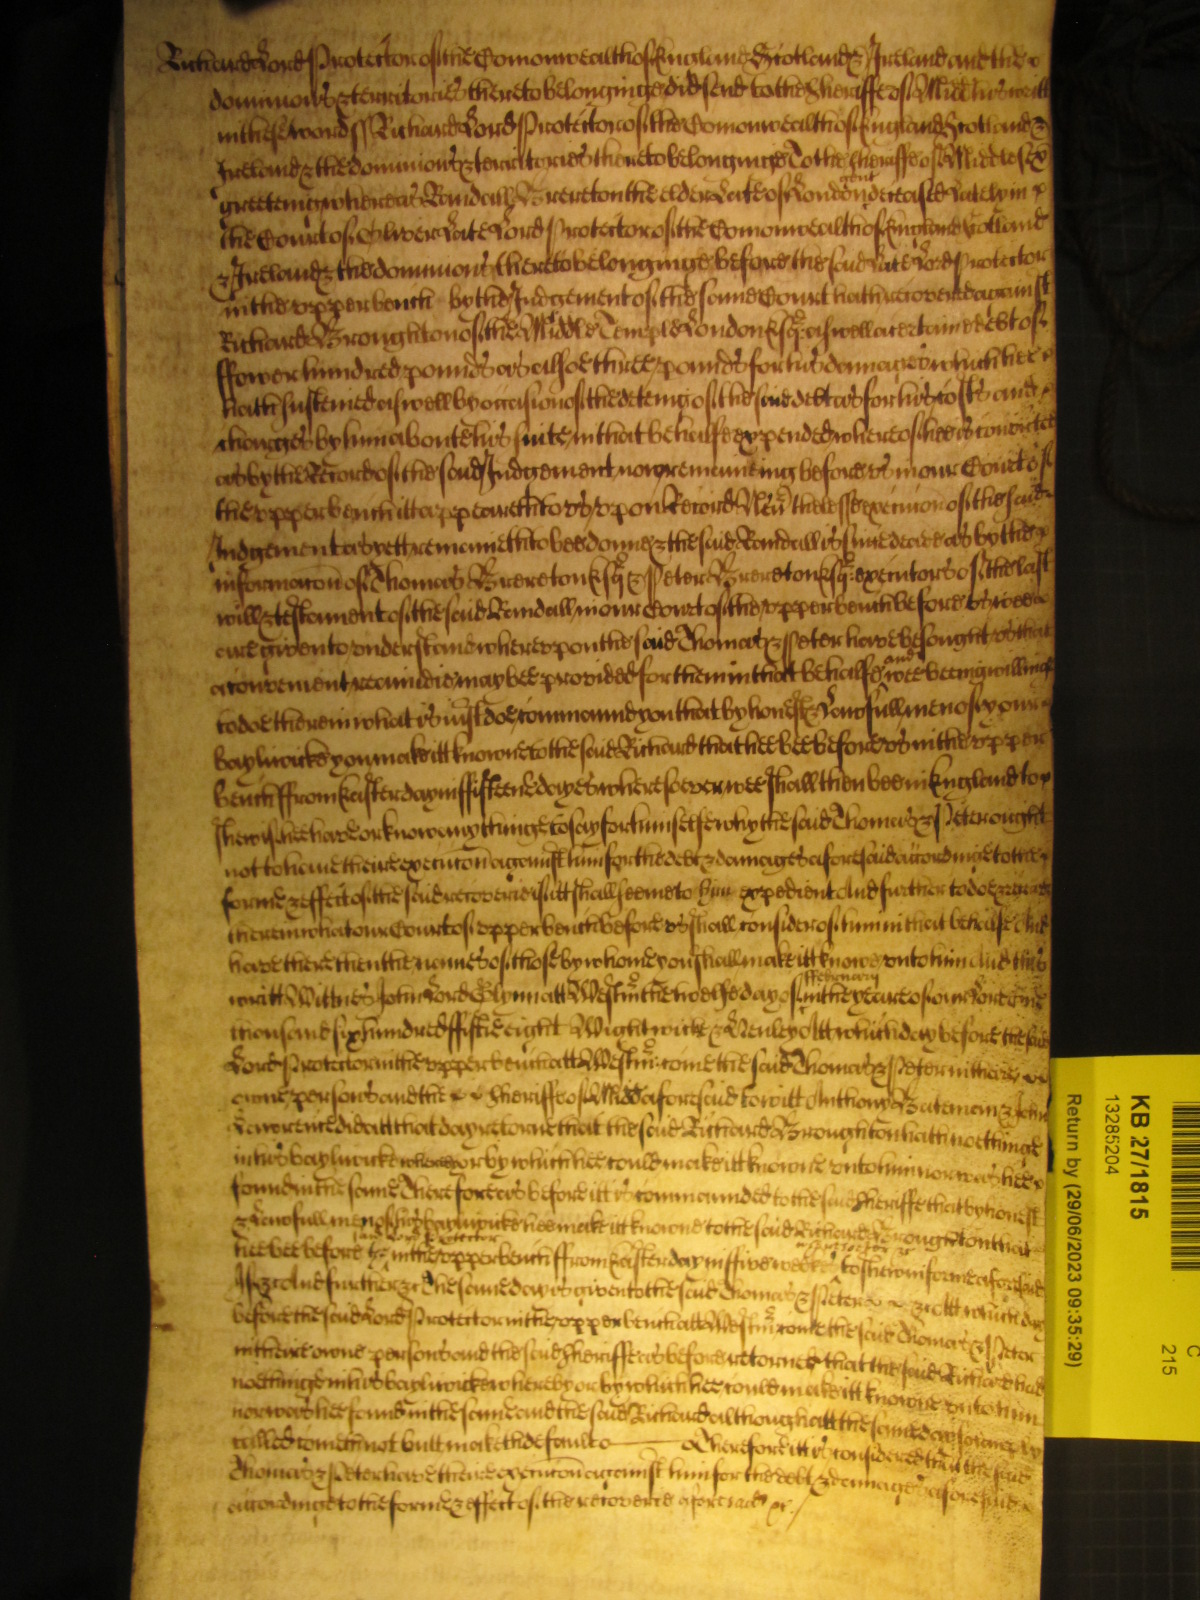 Richard Lord Protector of the Comonwealth of England Scotland & Ireland and the
dominions & territories thereto belonginge did send to the Sheriffe of Midd his writt
in these words ss Richard Lord Protector of the Comonwealth of England Scotland &
Ireland & the dominions & territories thereto belonginge To the Sheriffe of Middlesex
greeteing whereas Randall Brereton the elder late of London gent deceased lately in
the Court of Oliver late Lord Protector of the Comonwealth of England Scotland
& Ireland & the dominions thereto belonginge before the said late Lord Protector
in the upper bench by the Judgement of the same Court hath recovered against
Richard Broughton of the Middle Temple London Esqr aswell a certaine debt of
ffower hundred pounds as alsoe three pounds for his damages which hee
hath susteined aswell by occasion of the deteing of the said debt as for his costs and
charges by him about his suite in that behalfe expended whereof hee is convicted
as by the Record of the said Judgement now remaineing before us in our Court of
the upper bench itt appeareth to us upon Record Nevertheless execucon of the said
Judgement as yett remaineth to bee donne & the said Randall is since dead as by the
informacon of Thomas Brereton Esqr & Peter Brereton Esqr executors of the last
will & testament of the said Randall in our Court of the upper bench before us wee
are given to understand whereupon the said Thomas & Peter have besought us that
a convenient reamidie may bee provided for them in that behalfe and wee beeing willinge
to doe therein what is just doe command you that by honest & lawfull men of your
baylywicke you make itt knowne to the said Richard that hee bee before us in the upper
bench ffrom Easter day in ffifteene dayes wheresoever wee shall then bee in England to
shew if hee have or know any thinge to say for himselfe why the said Thomas & Peter ought
not to have theire execucon against him for the debt & damages aforesaid accordinge to the
forme & effect of the said recoverie if itt shall seeme to him expedient And further to doe & receive
therein what our Court of upper bench before us shall consider of him in that behalfe And
have there then the names of those by whome you shall make itt knowne unto him And this
writt Wittnes John Lord Glynn att Westmr the day of ffebruary in the yeare of our Lord one
thousand six hundred ffiftie eight Wightwicke & Henley Att which day before the said
Lord Protector in the upper bench att Westmr come the said Thomas & Peter in theire
owne persons and the Sheriffe of Midd aforesaid to witt Anthony Bateman & John
Lawrence did att that day retorne that the said Richard Broughton hath noethinge
in his baylywicke whereby or by which hee could make itt knowne unto him nor was hee
found in the same Therefore as before itt is commanded to the said Sheriffe that by honest
& lawfull men of his baylywicke hee make itt knowne to the said Richard Broughton that
hee bee before the said Lord Protector in the upper bench ffrom Easter day in ffive weekes to shew in forme aforesaid
if &c And further &c The same day is given to the said Thomas & Peter &c Att which day
before the said Lord Protector in the upper bench att Westmr come the said Thomas & Peter
in theire owne persons and the said Sheriffe as before retorned that the said Richard had
noethinge in his baylywicke whereby or by which hee could make itt knowne unto him
nor was hee found in the same and the said Richard although att the same day solemnely
called cometh not butt maketh default Therefore itt is considered that the said
Thomas & Peter have theire execucon against him for the debt & damages aforesaid
accordinge to the forme & effect of the recoverie aforesaid &c
KB 27/1815
13285204
Return by (29/06/2023 09:35:29)
C
215